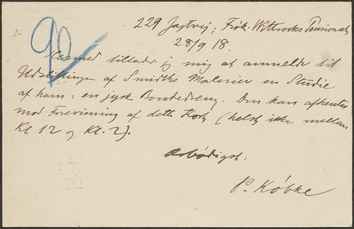 229 Jagtvej, Frk. Wittrocks Pensionat
28/9 18.
90
Hermed tillader jeg mig at anmelde til
Udstillingen af Smidths Malerier en Studie
af ham: en jysk Bondedreng. Den kan afhentes
mod Forevisning af dette Kort (helst ikke mellem
Kl. 12 og Kl. 2).
Ærbødigst.
P. Købke